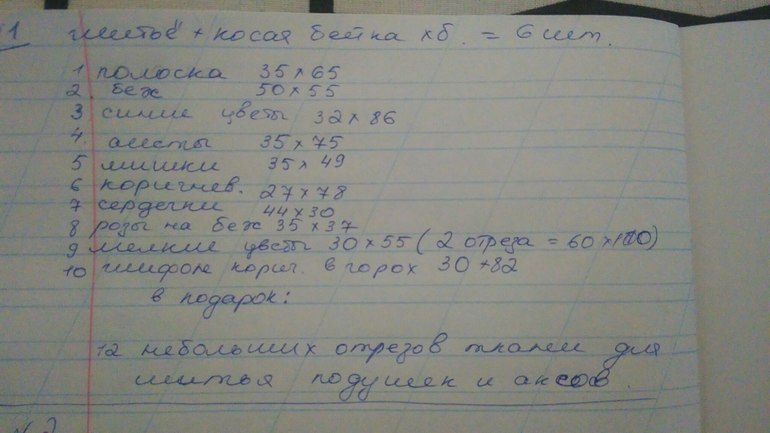 1 шитьё + косая бейка хб. = 6 шт.
1 полоска 35×65
2. беж 50×55
3 синие цветы 32×86
4. аисты 35×75
5 мишки 35×49
6 коричнев. 27×78
7 сердечки 44×30
8 розы на беж 35×37
9 мелкие цветы 30×55 (2 отреза = 60×110)
10 шифон корич. в горох 30+82
в подарок:
12 небольших отрезов ткани для
шитья подушек и аксов.
№2